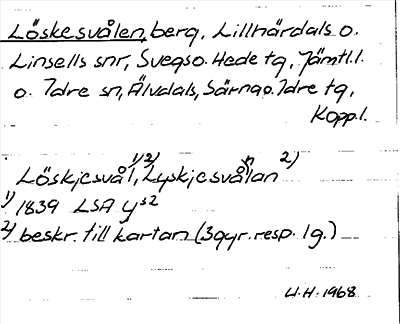 Löskesvålen, berg, Lillhärdals o.
Linsells snr, Svegs o. Hede tg, Jämtl.l.
o. Idre sn, Älvdals, Särna o. Idre tg,
Kopp.l.
Löskjesvål, 1)2) Lyskjesvålan 2)
1) 1839 LSA y52
2) beskr. till kartan (3 ggr. resp. 1 g.)
U.H. 1968